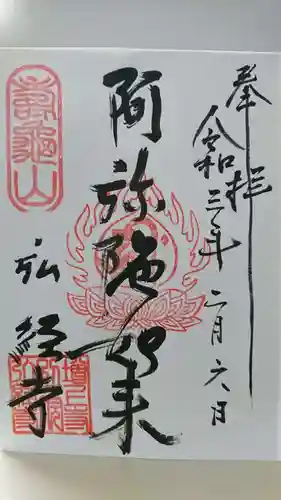 奉拝
令和三年二月六日
阿弥陀如来
壽龜山
弘経寺